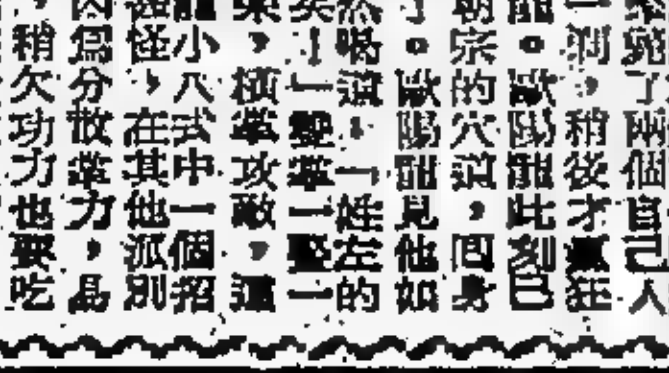 了兩個自己人
一刹，稍後才瘋狂
龍。歐陽龍此刻已
朝宗的穴道，回身
了。歐陽龍見他如
然喝道：「姓左的
！」雙掌一豎一
來，橫掌攻敵，運
小八式中一個招
怪，在其他派別
因爲分散掌力，易
，稍欠功力也要吃